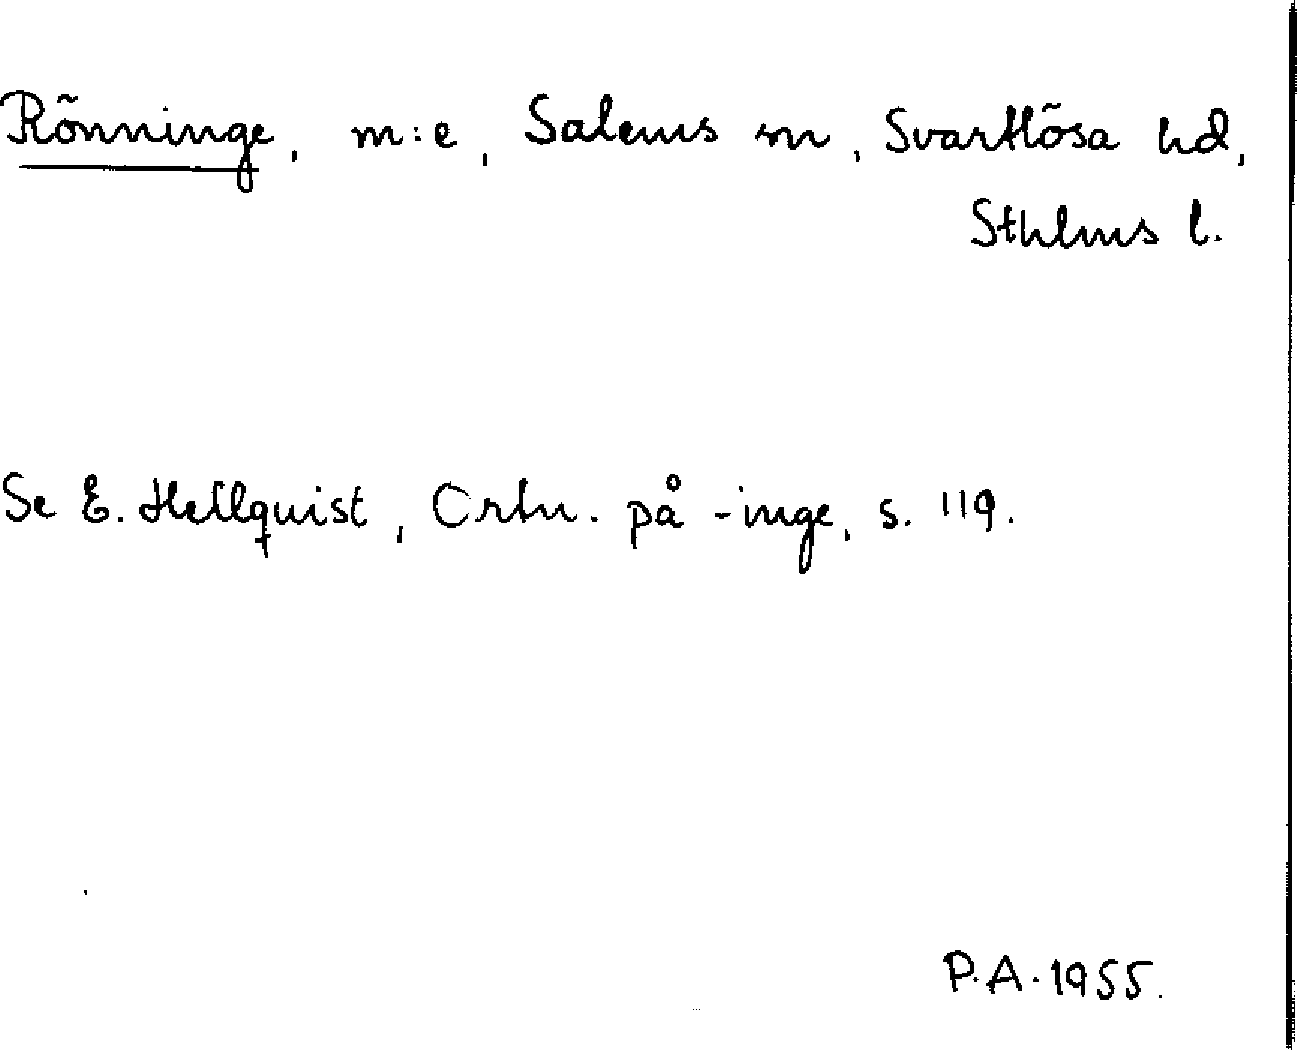 Rönninge, m:e, Salems sn, Svartlösa hd,
Sthlms l.
Se E. Hellquist, Ortn. på -inge, s. 119.
P.A. 1955.